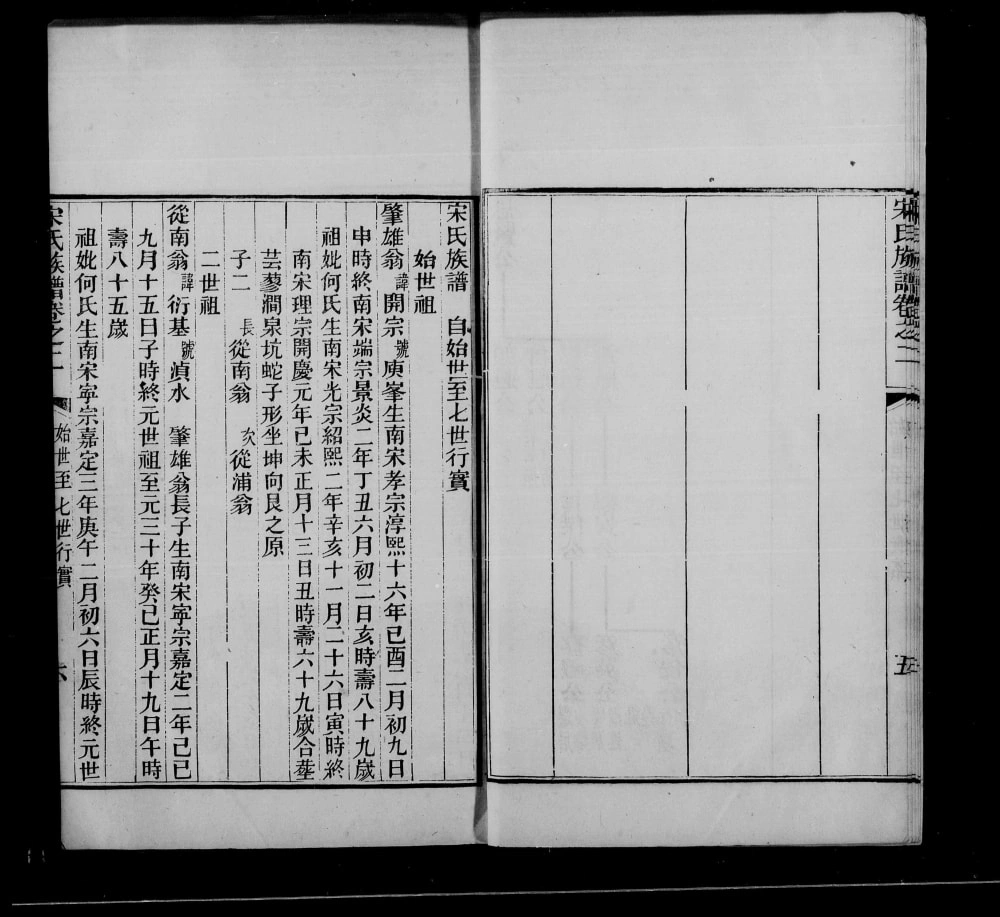 宋氏族譜卷之二
五
宋氏族譜　自始世至七世行實
始世祖
肇雄翁諱開宗號庾峯生南宋孝宗淳熙十六年己酉二月初九日
申時終南宋端宗景炎二年丁丑六月初二日亥時壽八十九歲
祖妣何氏生南宋光宗紹熙二年辛亥十一月二十六日寅時終
南宋理宗開慶元年己未正月十三日丑時壽六十九歲合塟
芸蓼澗泉坑蛇子形坐坤向艮之原
子二　長從南翁　次從浦翁
二世祖
從南翁諱衍基號湞水　肇雄翁長子生南宋寧宗嘉定二年己巳
九月十五日子時終元世祖至元三十年癸巳正月十九日午時
壽八十五歲
祖妣何氏生南宋寧宗嘉定三年庚午二月初六日辰時終元世
宋氏族譜卷之二　始世至七世行實　六